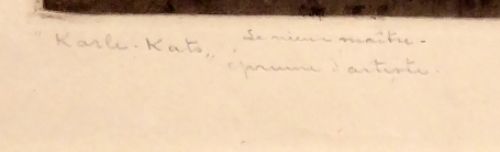 "Karle-Kats„ Le vieux maître-
épreuve d'artiste.